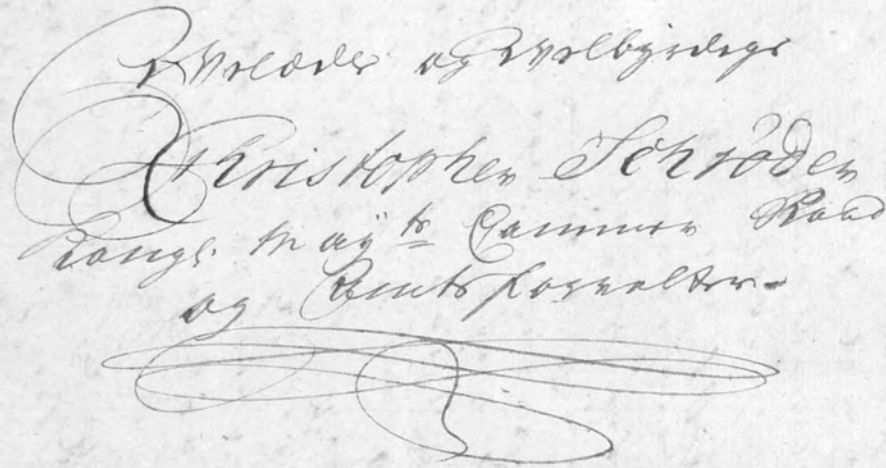 Velædle og Velbyrdige
Christopher Schrøder
Kongl. Mayts Cammer Raad
og Amtsforvalter